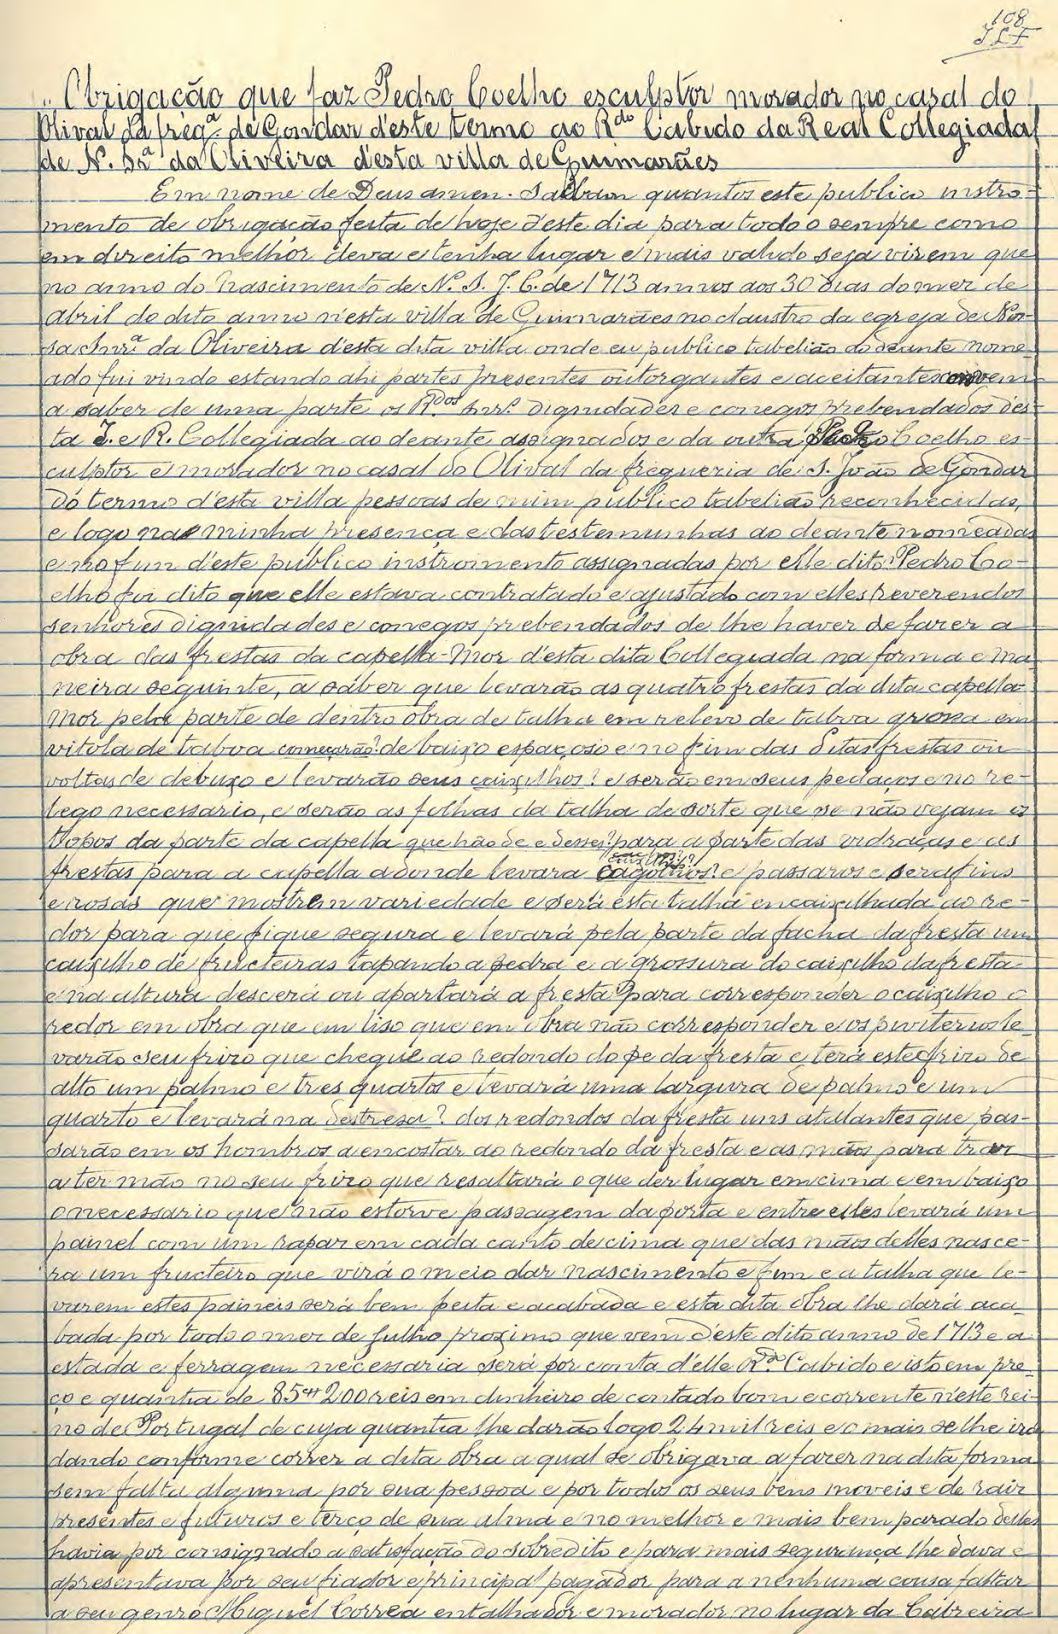 108
J L F
"Obrigação que faz Pedro Coelho esculptor morador no casal do
Olival da freg.ª de Gondar d'este termo ao R.do Cabido da Real Collegiada
de N. Sr.ª da Oliveira d'esta villa de Guimarães
Em nome de Deus amen. Saibam quantos este publico instro-
mento de obrigação feita de hoje d'este dia para todo o sempre como
em direito melhór deva e tenha lugar e mais valido seja virem que
no anno do Nascimento de N. S. J. C. de 1713 annos aos 30 dias do mez de
abril do dito anno n'esta villa de Guimarães no claustro da egreja de Nos-
sa Snr.ª da Oliveira d'esta dita villa onde eu publico tabelião ao deante nome-
ado fui vindo estando ahi partes presentes outorgantes e aceitantes convem
a saber de uma parte os R.dos Snr.s dignidades e conegos prebendados des-
ta I. e R. Collegiada ao deante assignados e da outra Pedro Coelho es-
culptor e morador no casal do Olival da freguezia de S. João de Gondar
do termo d'esta villa pessoas de mim publico tabelião reconhecidas,
e logo na minha presença e das testemunhas ao deante nomeadas
e no fim d'este publico instromento assignadas por elle dito Pedro Co-
elho foi dito que elle estava contratado e ajustado com elles reverendos
senhores dignidades e conegos prebendados de lhe haver de fazer a
obra das frestas da capella-Mor d'esta dita Collegiada na forma e ma-
neira seguinte, a saber que levarão as quatro frestas da dita capella
Mor pela parte de dentro obra de talha em relevo de taboa grossa em
vitola de taboa começarão? de baixo espaçoso e no fim das ditas frestas ou
voltas de debuxo e levarão seus caixilhos? e serão em seus pedaços e no re-
lego necessario, e serão as folhas da talha de sorte que se não vejam os
topos da parte da capella que hão de e desses? para a parte das vidraças e as
frestas para a capella adonde levara cagolhos? e passaros e serafins
e rosas que mostrem variedade e será esta talha encaixilhada ao re-
dor para que fique segura e levará pela parte da facha da fresta um
caixilho de fructeiras tapando a pedra e a grossura do caixilho da fresta
e na altura descerá ou apartará a fresta para corresponder o caixilho o
redor em obra que em liso que em obra não corresponder e os le-
varão seu frizo que chegue ao redondo do pe da fresta e terá este frizo de
alto um palmo e tres quartos e levará uma largura de palmo e um
quarto e levará na destresa? dos redondos da fresta uns atallantes que pas-
sarão em os hombros a encostar ao redondo da fresta e as mãos para
a ter mão no seu frizo que resaltará o que der lugar em cima e em baixo
o necessario que não estorve passagem da porta e entre elles levará um
painel com um rapaz em cada canto de cima que das mãos delles nasce-
ra um fructeiro que virá o meio dar nascimento e fim e a talha que le-
varem estes paineis será bem feita e acabada e esta dita obra lhe dará aca-
bada por todo o mez de Julho proximo que vem d'este dito anno de 1713 e a
estada e ferragem necessaria será por conta d'elle R.do Cabido e isto em pre-
ço e quantia de 85$200 reis em dinheiro de contado bom e corrente n'este rei-
no de Portugal de cuja quantia lhe darão logo 24 mil reis e o mais se lhe irá
dando conforme correr a dita obra a qual se obrigava a fazer na dita forma
sem falta alguma por sua pessoa e por todos os seus bens moveis e de raiz
presentes e futuros e terço de sua alma e no melhor e mais bem parado delles
havia por consignado a satisfação do sobredito e para mais segurança lhe dava e
apresentava por seu fiador e principal pagador para a nenhuma cousa faltar
a seu genro Miguel Correa entalhador e morador no lugar da Cabreira